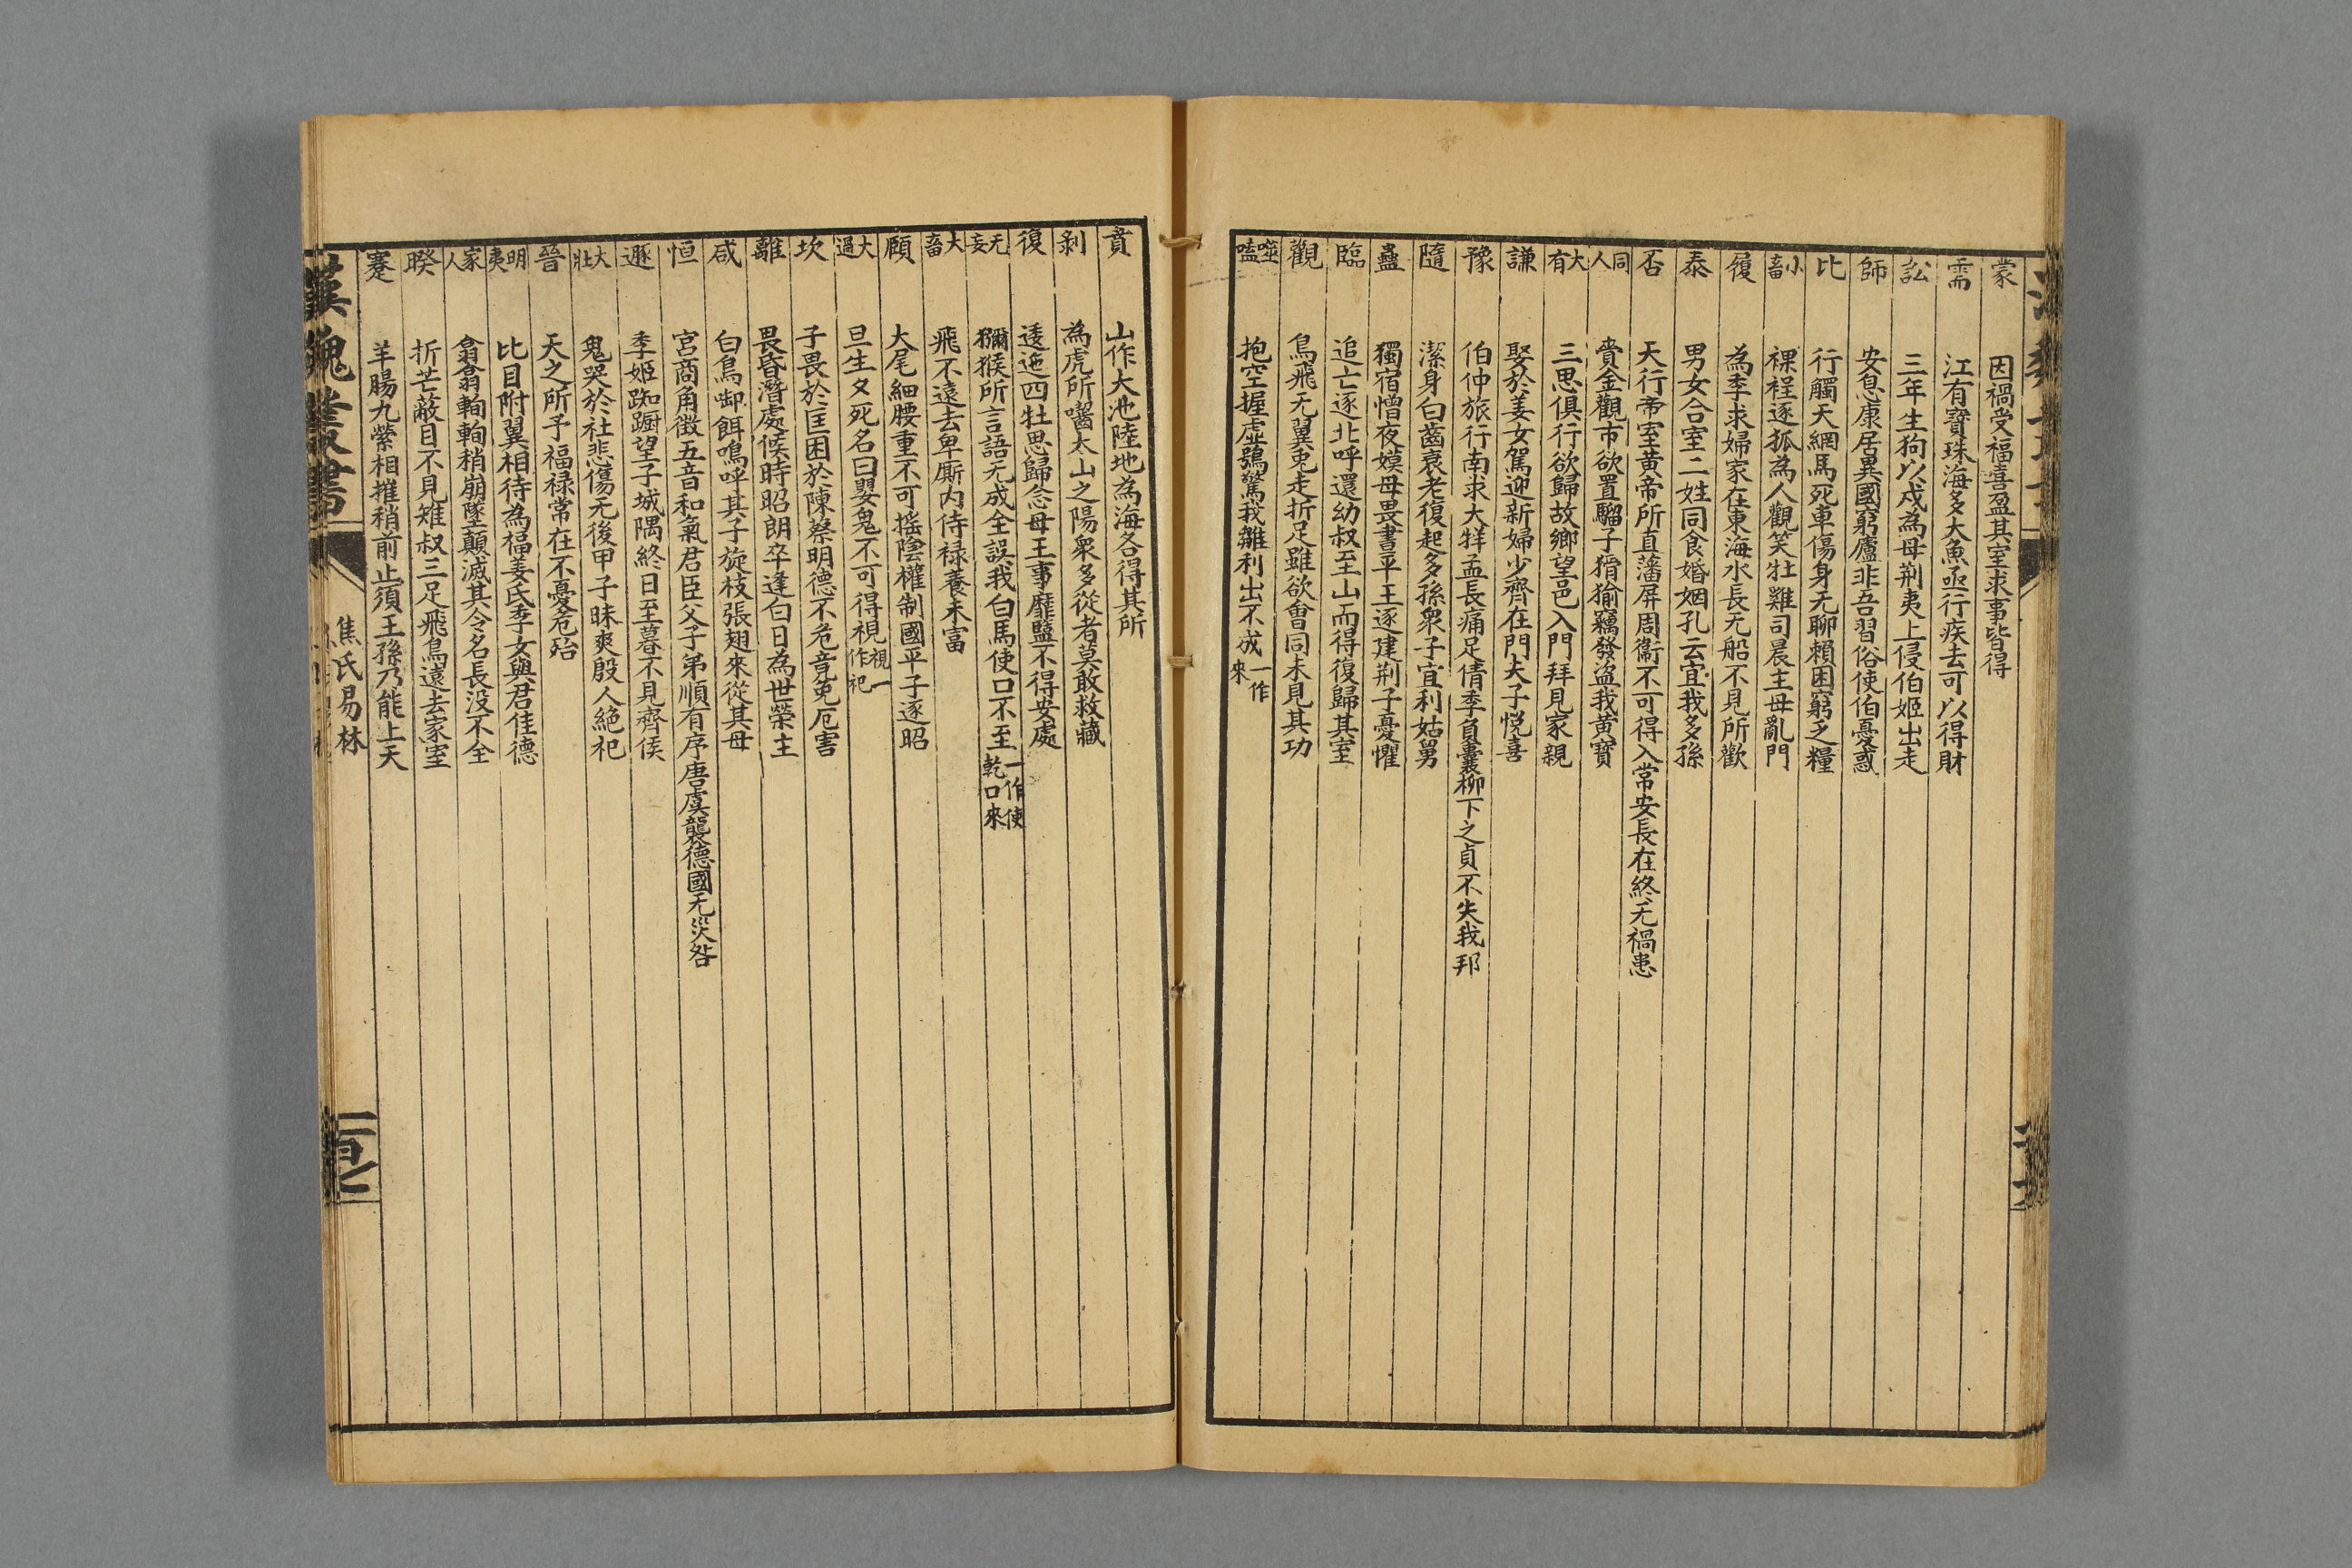 蒙 因禍受福喜盈其室求事皆得
需 江有寶珠海多大魚亟行疾去可以得財
訟 三年生狗以戍為母荆夷上侵伯姬出走
師 安息康居異國窮廬非吾習俗使伯憂惑
比 行觸天網馬死車傷身无聊賴困窮乏糧
小畜 裸裎逐狐為人觀笑牡雞司晨主母亂門
履 為季求婦家在東海水長无船不見所歡
泰 男女合室二姓同食婚姻孔云宜我多孫
否 天行帝室黄帝所直藩屏周衞不可得入常安長在終无禍患
同人 賫金觀市欲置騮子猾偷竊發盜我黄寶
大有 三思俱行欲歸故鄉望邑入門拜見家親
謙 娶於姜女駕迎新婦少齊在門夫子悦喜
豫 伯仲旅行南求大牂孟長痛足倩季負囊柳下之貞不失我邦
隨 潔身白齒衰老復起多孫衆子宜利姑舅
蠱 獨宿憎夜嫫母畏晝平王逐建荆子憂懼
臨 追亡逐北呼還幼叔至山而得復歸其室
觀 鳥飛无翼兎走折足雖欲會同未見其功
噬嗑 抱空握虛鴞驚我雛利出不成一作來
賁 山作大池陸地為海各得其所
剥 為虎所嚙太山之陽衆多從者莫敢救藏
復 逶迤四牡思歸念母王事靡盬不得安處
无妄 獼猴所言語无成全誤我白馬使口不至一作使乾口來
大畜 飛不遠去卑廝内侍禄養未富
頤 大尾細腰重不可摇陰權制國平子逐昭
大過 旦生夕死名曰嬰鬼不可得視視一作祀
坎 子畏於匡困於陳蔡明德不危竟免厄害
離 畏昏潛處候時昭朗卒逢白日為世榮主
咸 白鳥啣餌鳴呼其子旋枝張翅來從其母
恒 宮商角徵五音和氣君臣父子弟順有序唐虞襲德國无災咎
遯 季姬踟躕望子城隅終日至暮不見齊侯
大壯 鬼哭於社悲傷无後甲子昧爽殷人絶祀
晉 天之所予福禄常在不憂危殆
明夷 比目附翼相待為福姜氏季女與君佳德
家人 翕翕輷輷稍崩墜顛滅其令名長没不全
睽 折芒蔽目不見雉叔三足飛鳥遠去家室
蹇 羊腸九縈相推稍前止須王孫乃能上天
漢魏叢書 焦氏易林